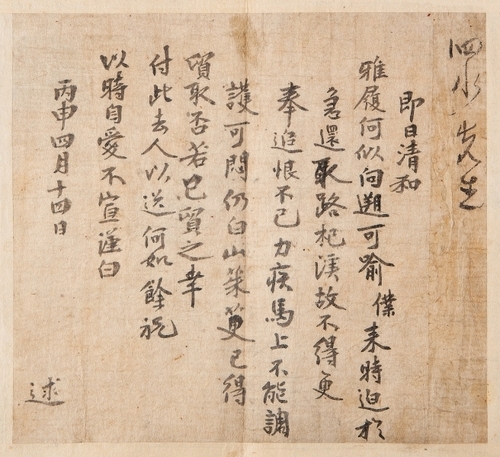 泗水先生
即日清和
雅履何似向遡可喩僕來時迫於
急還取路杞溪故不得更
奉追恨不已力疾馬上不能調
護可悶仍白山菜蔓已得
貿取否若已貿之幸
付此去人以送何如餘祝
以時自愛不宣謹白
丙申四月十四日
述